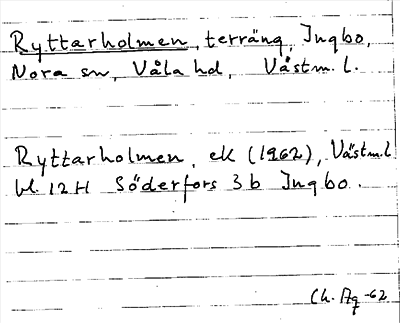 Ryttarholmen, terräng, Ingbo,
Nora sn, Våla hd, Västm. l.
Ryttarholmen, ek (1962), Västm. l
bl. 12H Söderfors 3 b Ingbo.
Ch. -62